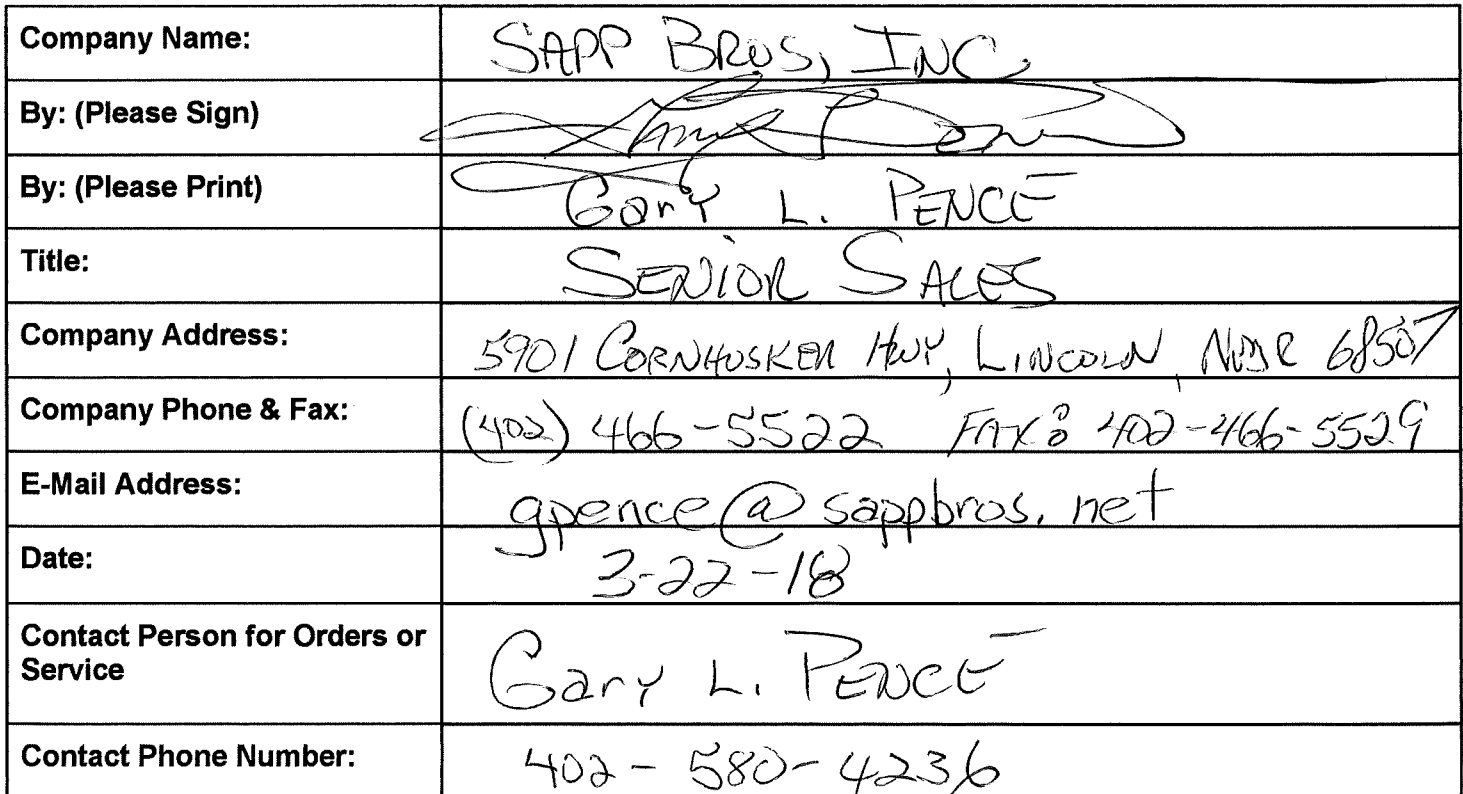 Company Name: SAPP BROS, INC.
By: (Please Sign)
By: (Please Print) Gary L. PENCE
Title: SENIOR SALES
Company Address: 5901 CORNHUSKER HWY, LINCOLN, 68507
Company Phone & Fax: (402) 466-5522 FAX: 402-466-5529
E-Mail Address: gpence@sappbros.net
Date: 3-22-18
Contact Person for Orders or
Service Gary L. PENCE
Contact Phone Number: 402-580-4236